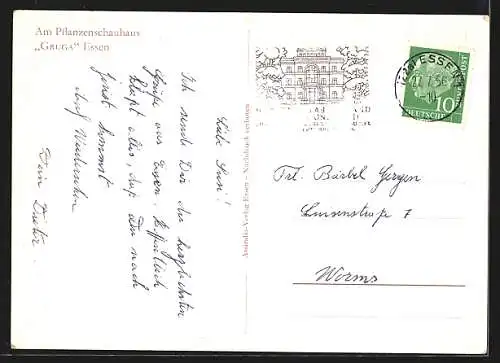 Am Pflanzenschauhaus
„GRUGA“ Essen
Liebe Susi!
Ich sende Dir die herzlichsten
Grüße aus Essen. Hoffentlich
klappt alles, daß Du nach
hier kommst.
Auf Wiedersehen
Dein Dieter.
Assindia-Verlag Essen - Nachdruck verboten
ESSEN
DEUTSCHE
10
Frl. Bärbel Gergen
Luisenstraße 7
Worms